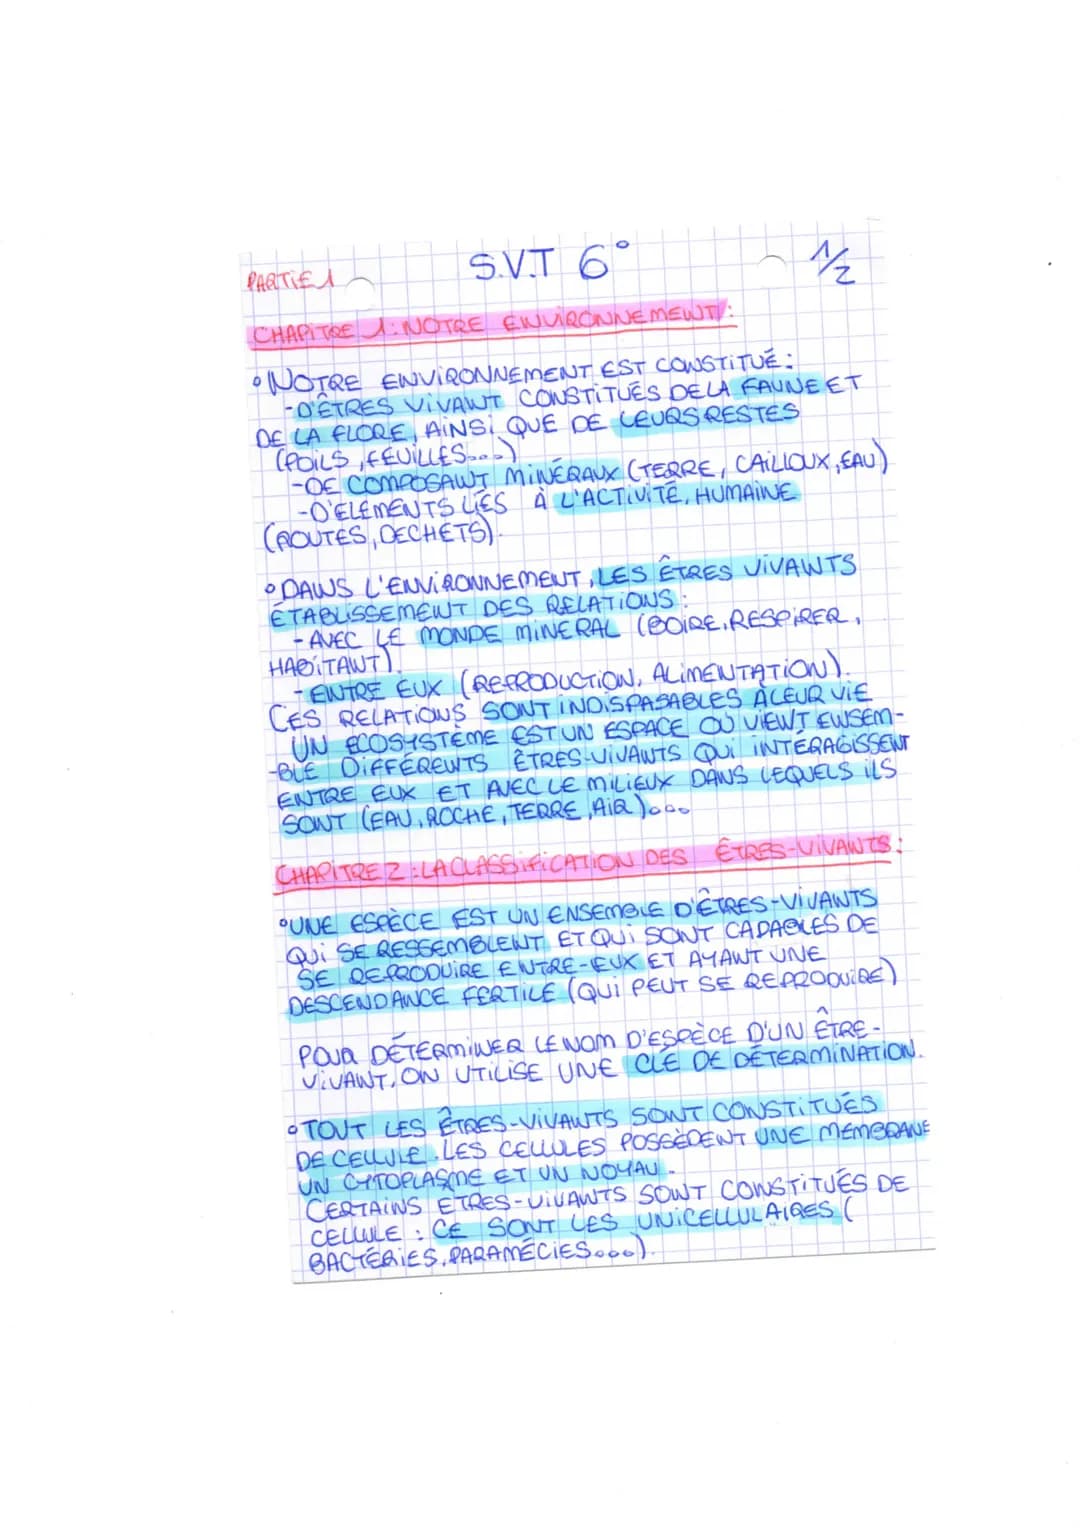 PARTIE 1
S.V.T 6°
1/2
CHAPITRE 1: NOTRE ENVIRONNEMENT:
° NOTRE ENVIRONNEMENT EST CONSTITUÉ:
-D'ÊTRES VIVANT CONSTITUÉS DE LA FAUNE ET
DE LA FLORE, AINSI QUE DE LEURS RESTES
(POILS, FEUILLES...)
-DE COMPOSANT MINÉRAUX (TERRE, CAILLOUX, EAU)
-D'ELEMENTS LIÉS À L'ACTIVITÉ, HUMAINE
(ROUTES, DECHETS).
° DANS L'ENVIRONNEMENT, LES ÊTRES VIVANTS
ÉTABLISSEMENT DES RELATIONS:
- AVEC LE MONDE MINERAL (BOIRE, RESPIRER,
HABITANT).
- ENTRE EUX (REPRODUCTION, ALIMENTATION).
CES RELATIONS SONT INDISPASABLES À LEUR VIE
UN ECOSYSTÈME EST UN ESPACE OÙ VIENT ENSEM-
-BLE DIFFÉRENTS ÊTRES-VIVANTS QUI INTÉRAGISSENT
ENTRE EUX ET AVEC LE MILIEUX DANS LEQUELS ILS
SONT (EAU, ROCHE, TERRE, AIR)...
CHAPITRE 2: LA CLASSIFICATION DES ÊTRES-VIVANTS:
° UNE ESPÈCE EST UN ENSEMBLE D'ÊTRES-VIVANTS
QUI SE RESSEMBLENT ET QUI SONT CAPABLES DE
SE REPRODUIRE ENTRE-EUX ET AYANT UNE
DESCENDANCE FERTILE (QUI PEUT SE REPRODUIRE)
POUR DÉTERMINER LE NOM D'ESPÈCE D'UN ÊTRE-
VIVANT, ON UTILISE UNE CLÉ DE DÉTERMINATION.
° TOUT LES ÊTRES-VIVANTS SONT CONSTITUÉS
DE CELLULE. LES CELLULES POSSÈDENT UNE MEMBRANE
UN CYTOPLASME ET UN NOYAU.
CERTAINS ETRES-VIVANTS SONT CONSTITUÉS DE
CELLULE : CE SONT LES UNICELLULAIRES (
BACTÉRIES, PARAMÉCIES...).